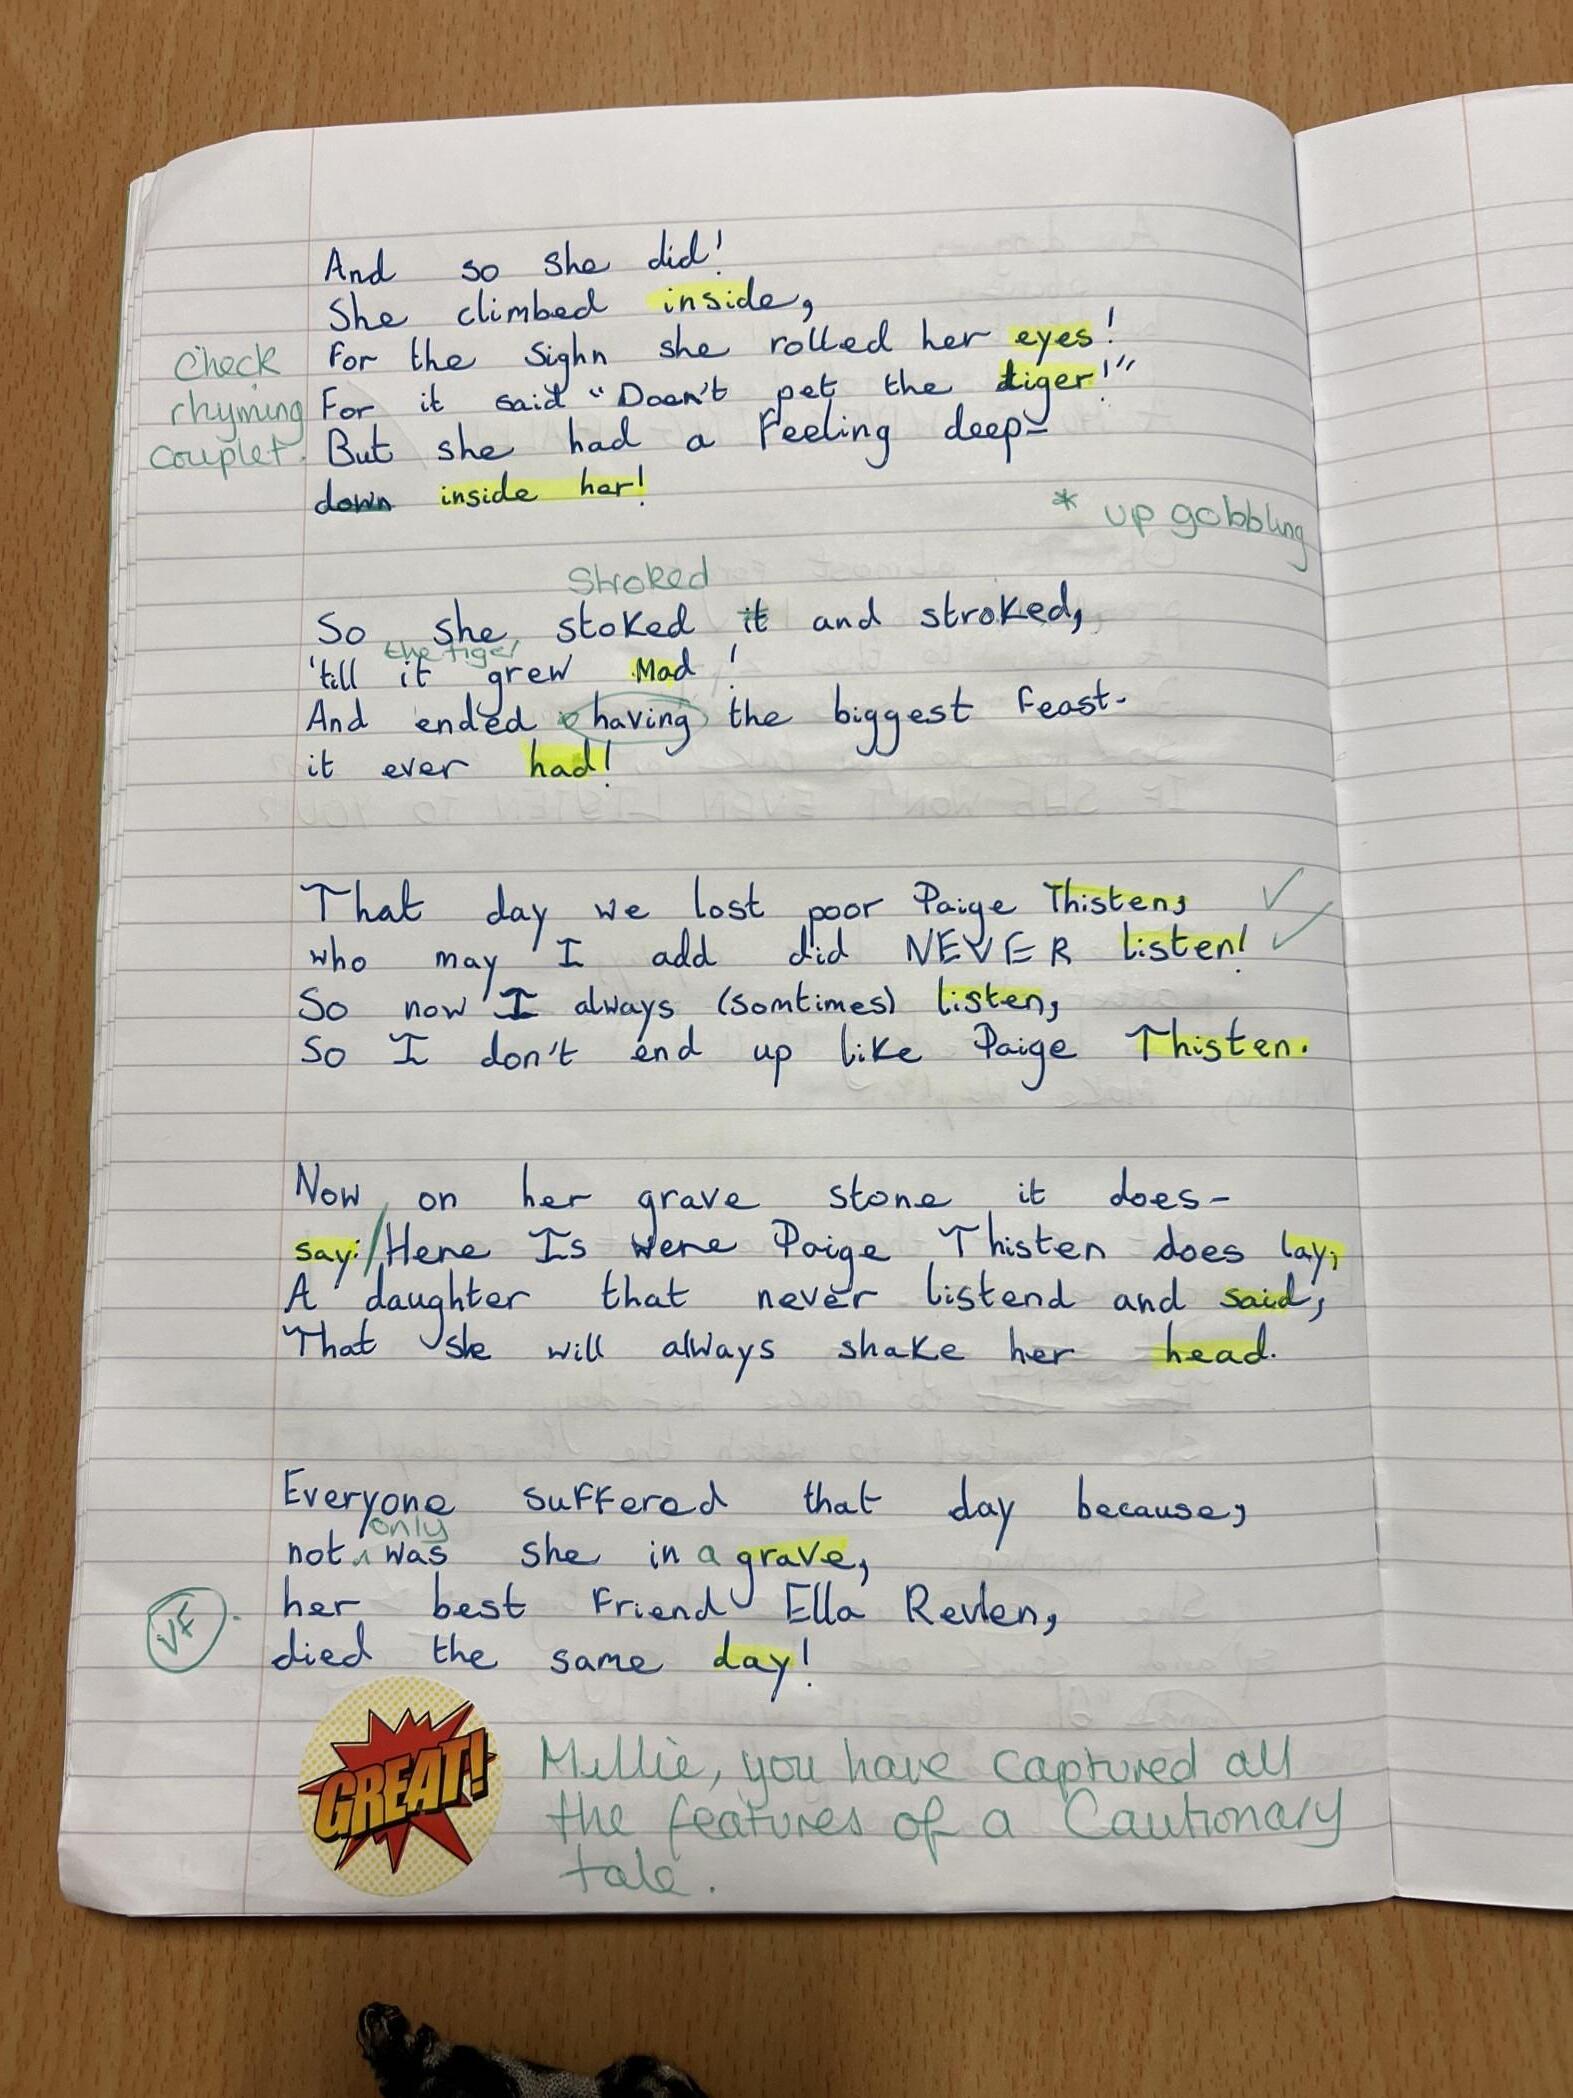 And so she did!
She climbed inside,
Check
For the Sighn she rolled her eyes!
rhyming
For it said "Doen't pet the tiger!"
couplet.
But she had a Feeling deep-
down inside her!
* up gobbling
Stroked
So she stoked it and stroked,
the tiger
'till it grew Mad!
And ended having the biggest Feast-
it ever had!
That day we lost poor Paige Thisten,
who may I add did NEVER listen!
So now I always (somtimes) listen,
So I don't end up like Paige Thisten.
Now on her grave stone it does-
say: / Here Is Were Paige Thisten does lay,
A daughter that never listend and said,
That she will always shake her head.
Everyone suffered that day because,
only
not was she in a grave,
her best Friend Ella Revlen,
VF
died the same day!
GREAT!
Millie, you have captured all
the features of a Cautionary
tale.